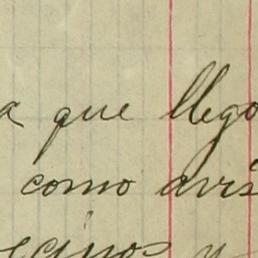 a que llego
como avis
ecinos y